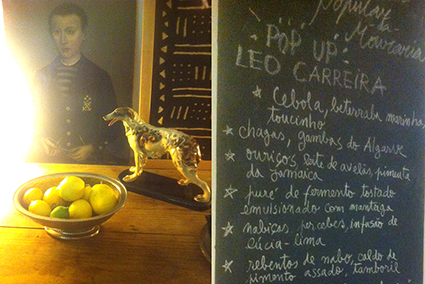 popular
da
Mouraria
POP UP
LEO CARREIRA
* Cebola, beterraba marinha,
toucinho
* chagas, gambas do Algarve
* ouriços, leite de avelãs, pimenta
da Jamaica
* puré de fermento tostado
emulsionado com manteiga
* nabiças, percebes, infusão de
lúcia-lima
* rebentos de nabo, caldo de
pimento assado, tamboril